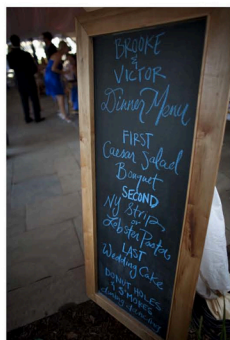 BROOKE
&
VICTOR
Dinner Menu
FIRST
Caesar Salad
Bouquet
SECOND
NY Strips
or
Lobster Pasta
LAST
Wedding Cake
DONUT HOLES
S'MORES